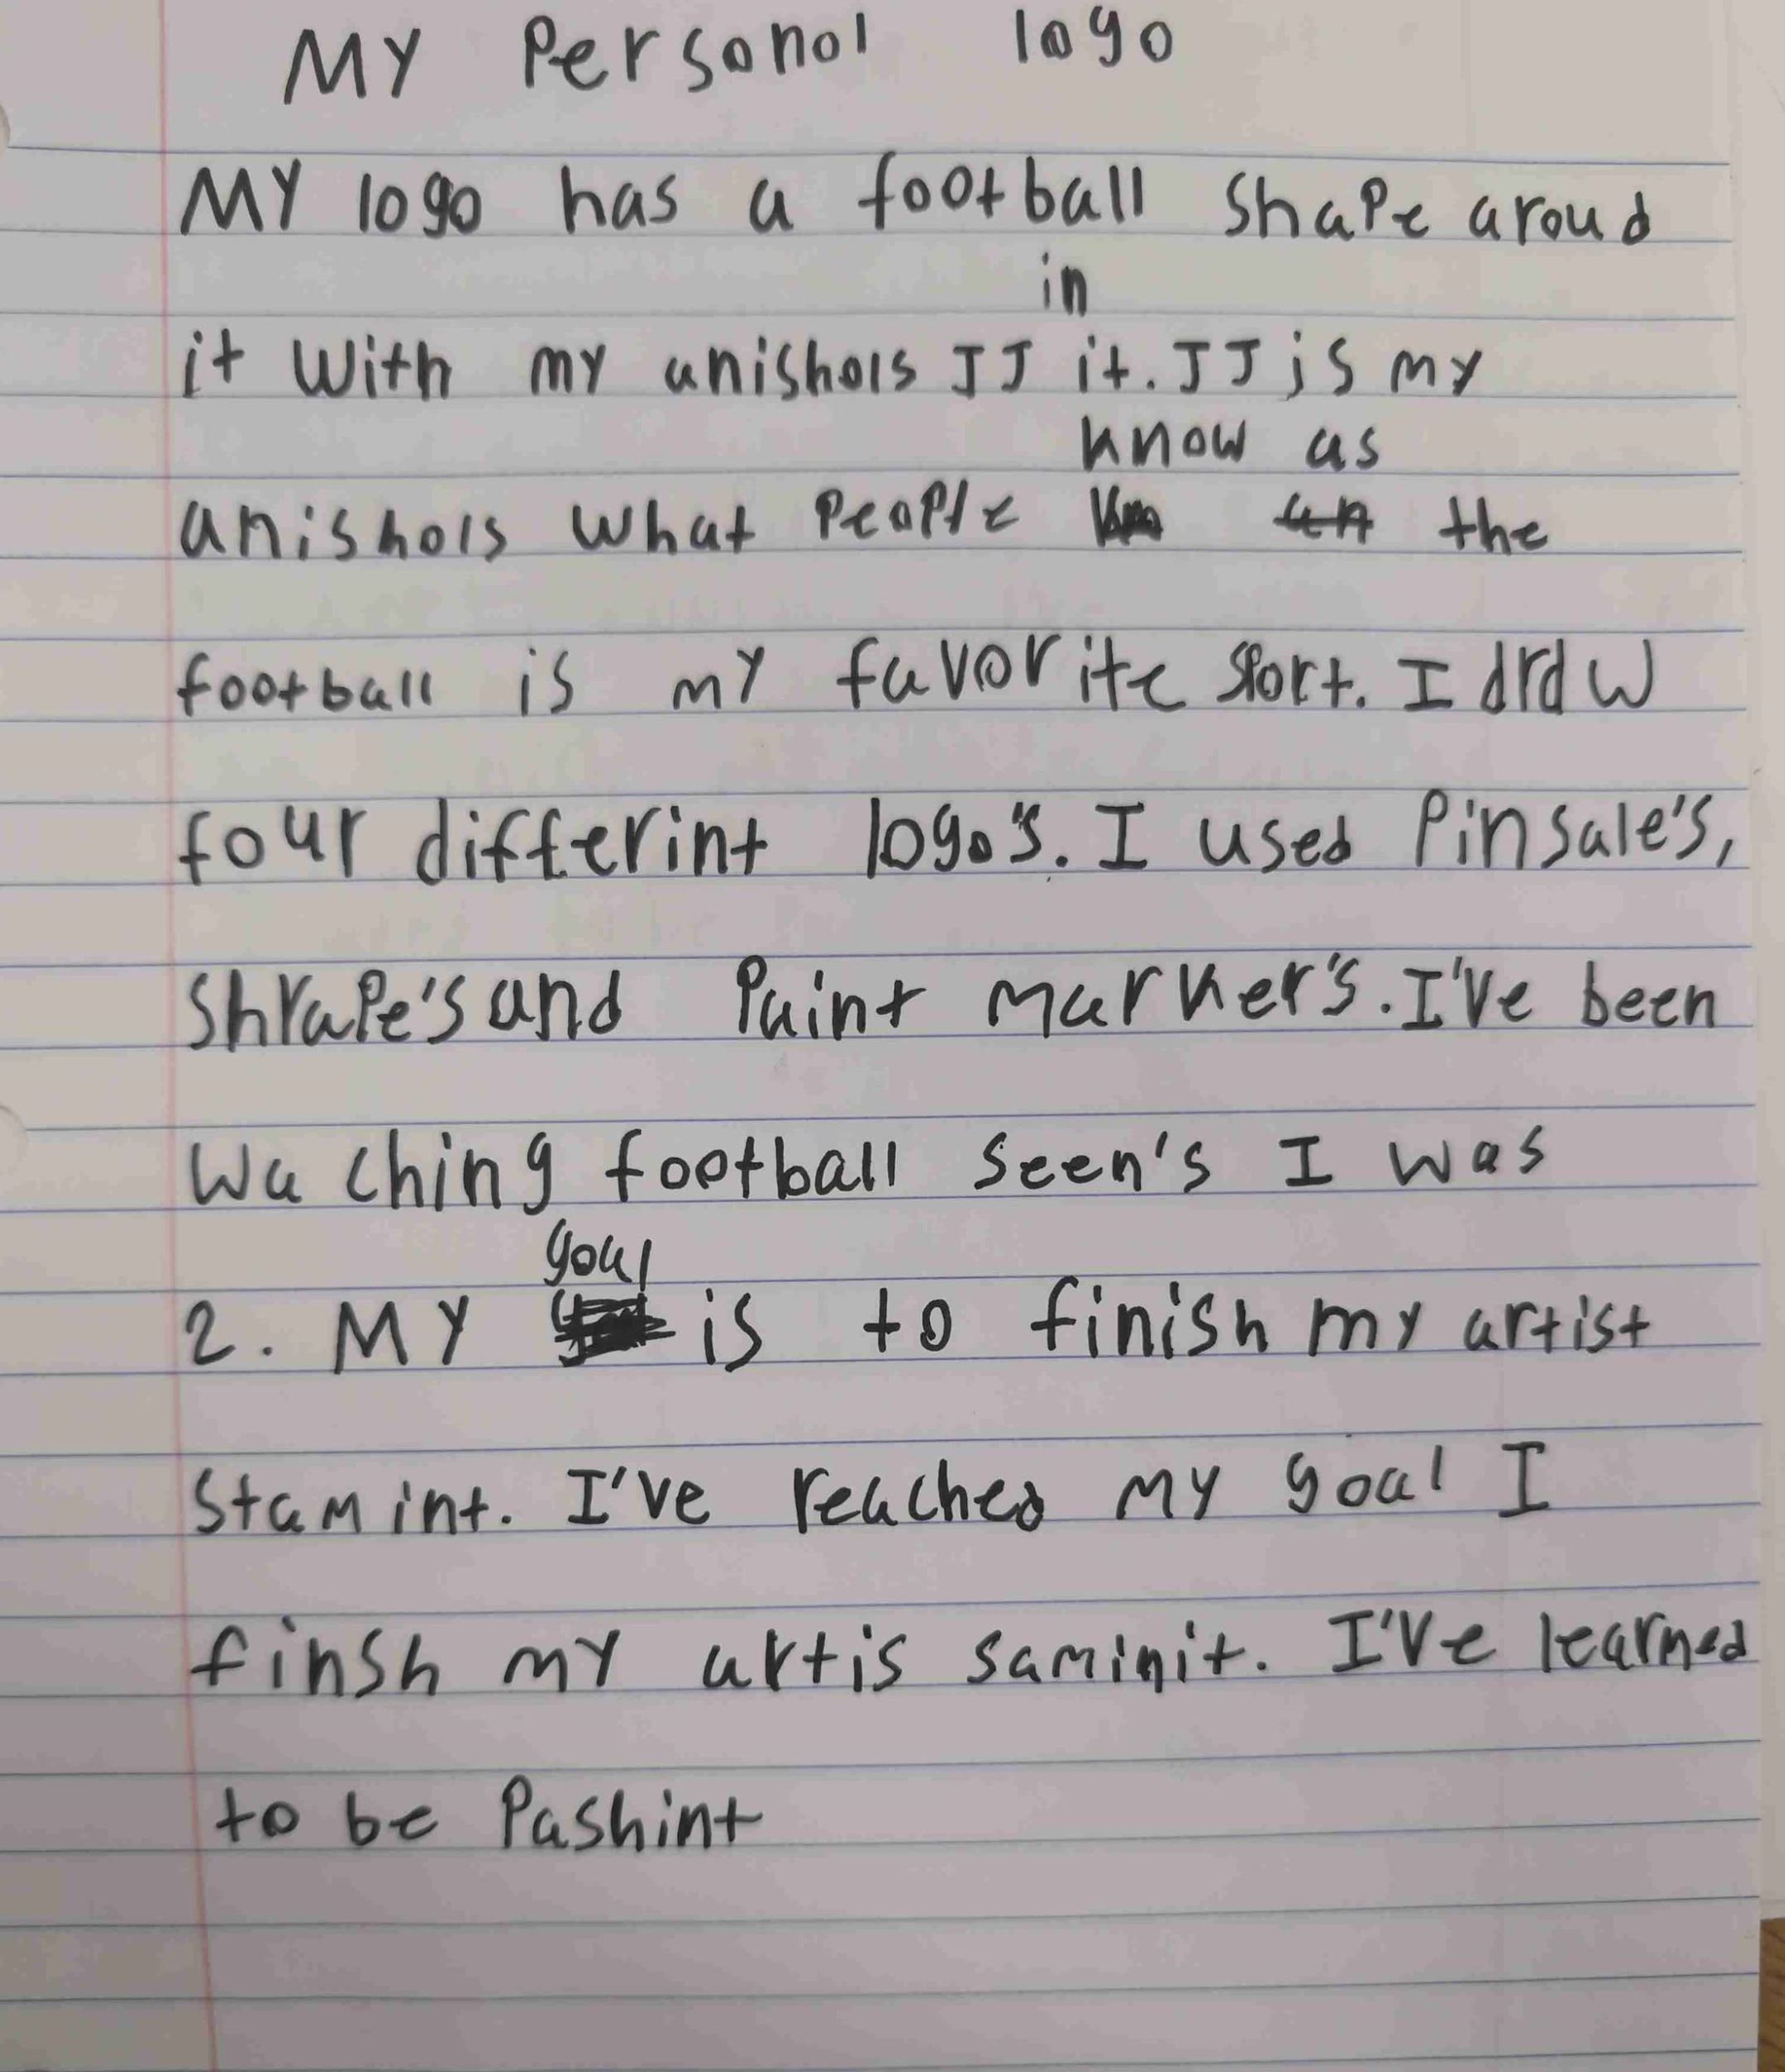 My Personol logo
My logo has a football shape aroud
in
it with my anishols JJ it. JJ is my
know as
anishols what people the
football is my favorite sport. I draw
four differint logo's. I used Pinsale's,
Shrape's and Paint marker's. I've been
Waching football seen's I was
goal
2. My is to finish my artist
stamint. I've reached my goal I
finsh my artis saminit. I've learned
to be Pashint